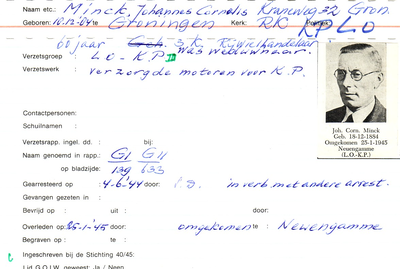 Naam etc.: Minck, Johannes Cornelis Kraneweg 32, Gron.
Geboren: 10.12.'84 te Groningen Kerk: RK Politiek
KP LO
60 jaar Geh. 3 K. Rijwielhandelaar
Verzetsgroep LO-K.P. was weduwnaar.
Verzetswerk verzorgde motoren voor K.P.
Contactpersonen:
Schuilnaam :
Verzetsrapp. ingel. dd. : bij:
Naam genoemd in rapp.: GI GII
op bladzijde: 139 633
Gearresteerd op :4-6-'44 door: S.D. in verb met andere arrest.
Gevangen gezeten in :
Bevrijd op : uit : door:
Overleden op :25-1-'45 door: omgekomen te : Neuengamme
Begraven op : te :
Ingeschreven bij de Stichting 40/45:
Lid G.O.I.W. geweest: Ja / Neen
Joh. Corn. Minck
Geb. 18-12-1884
Omgekomen 25-1-1945
Neuengamme
(L.O.-K.P.)